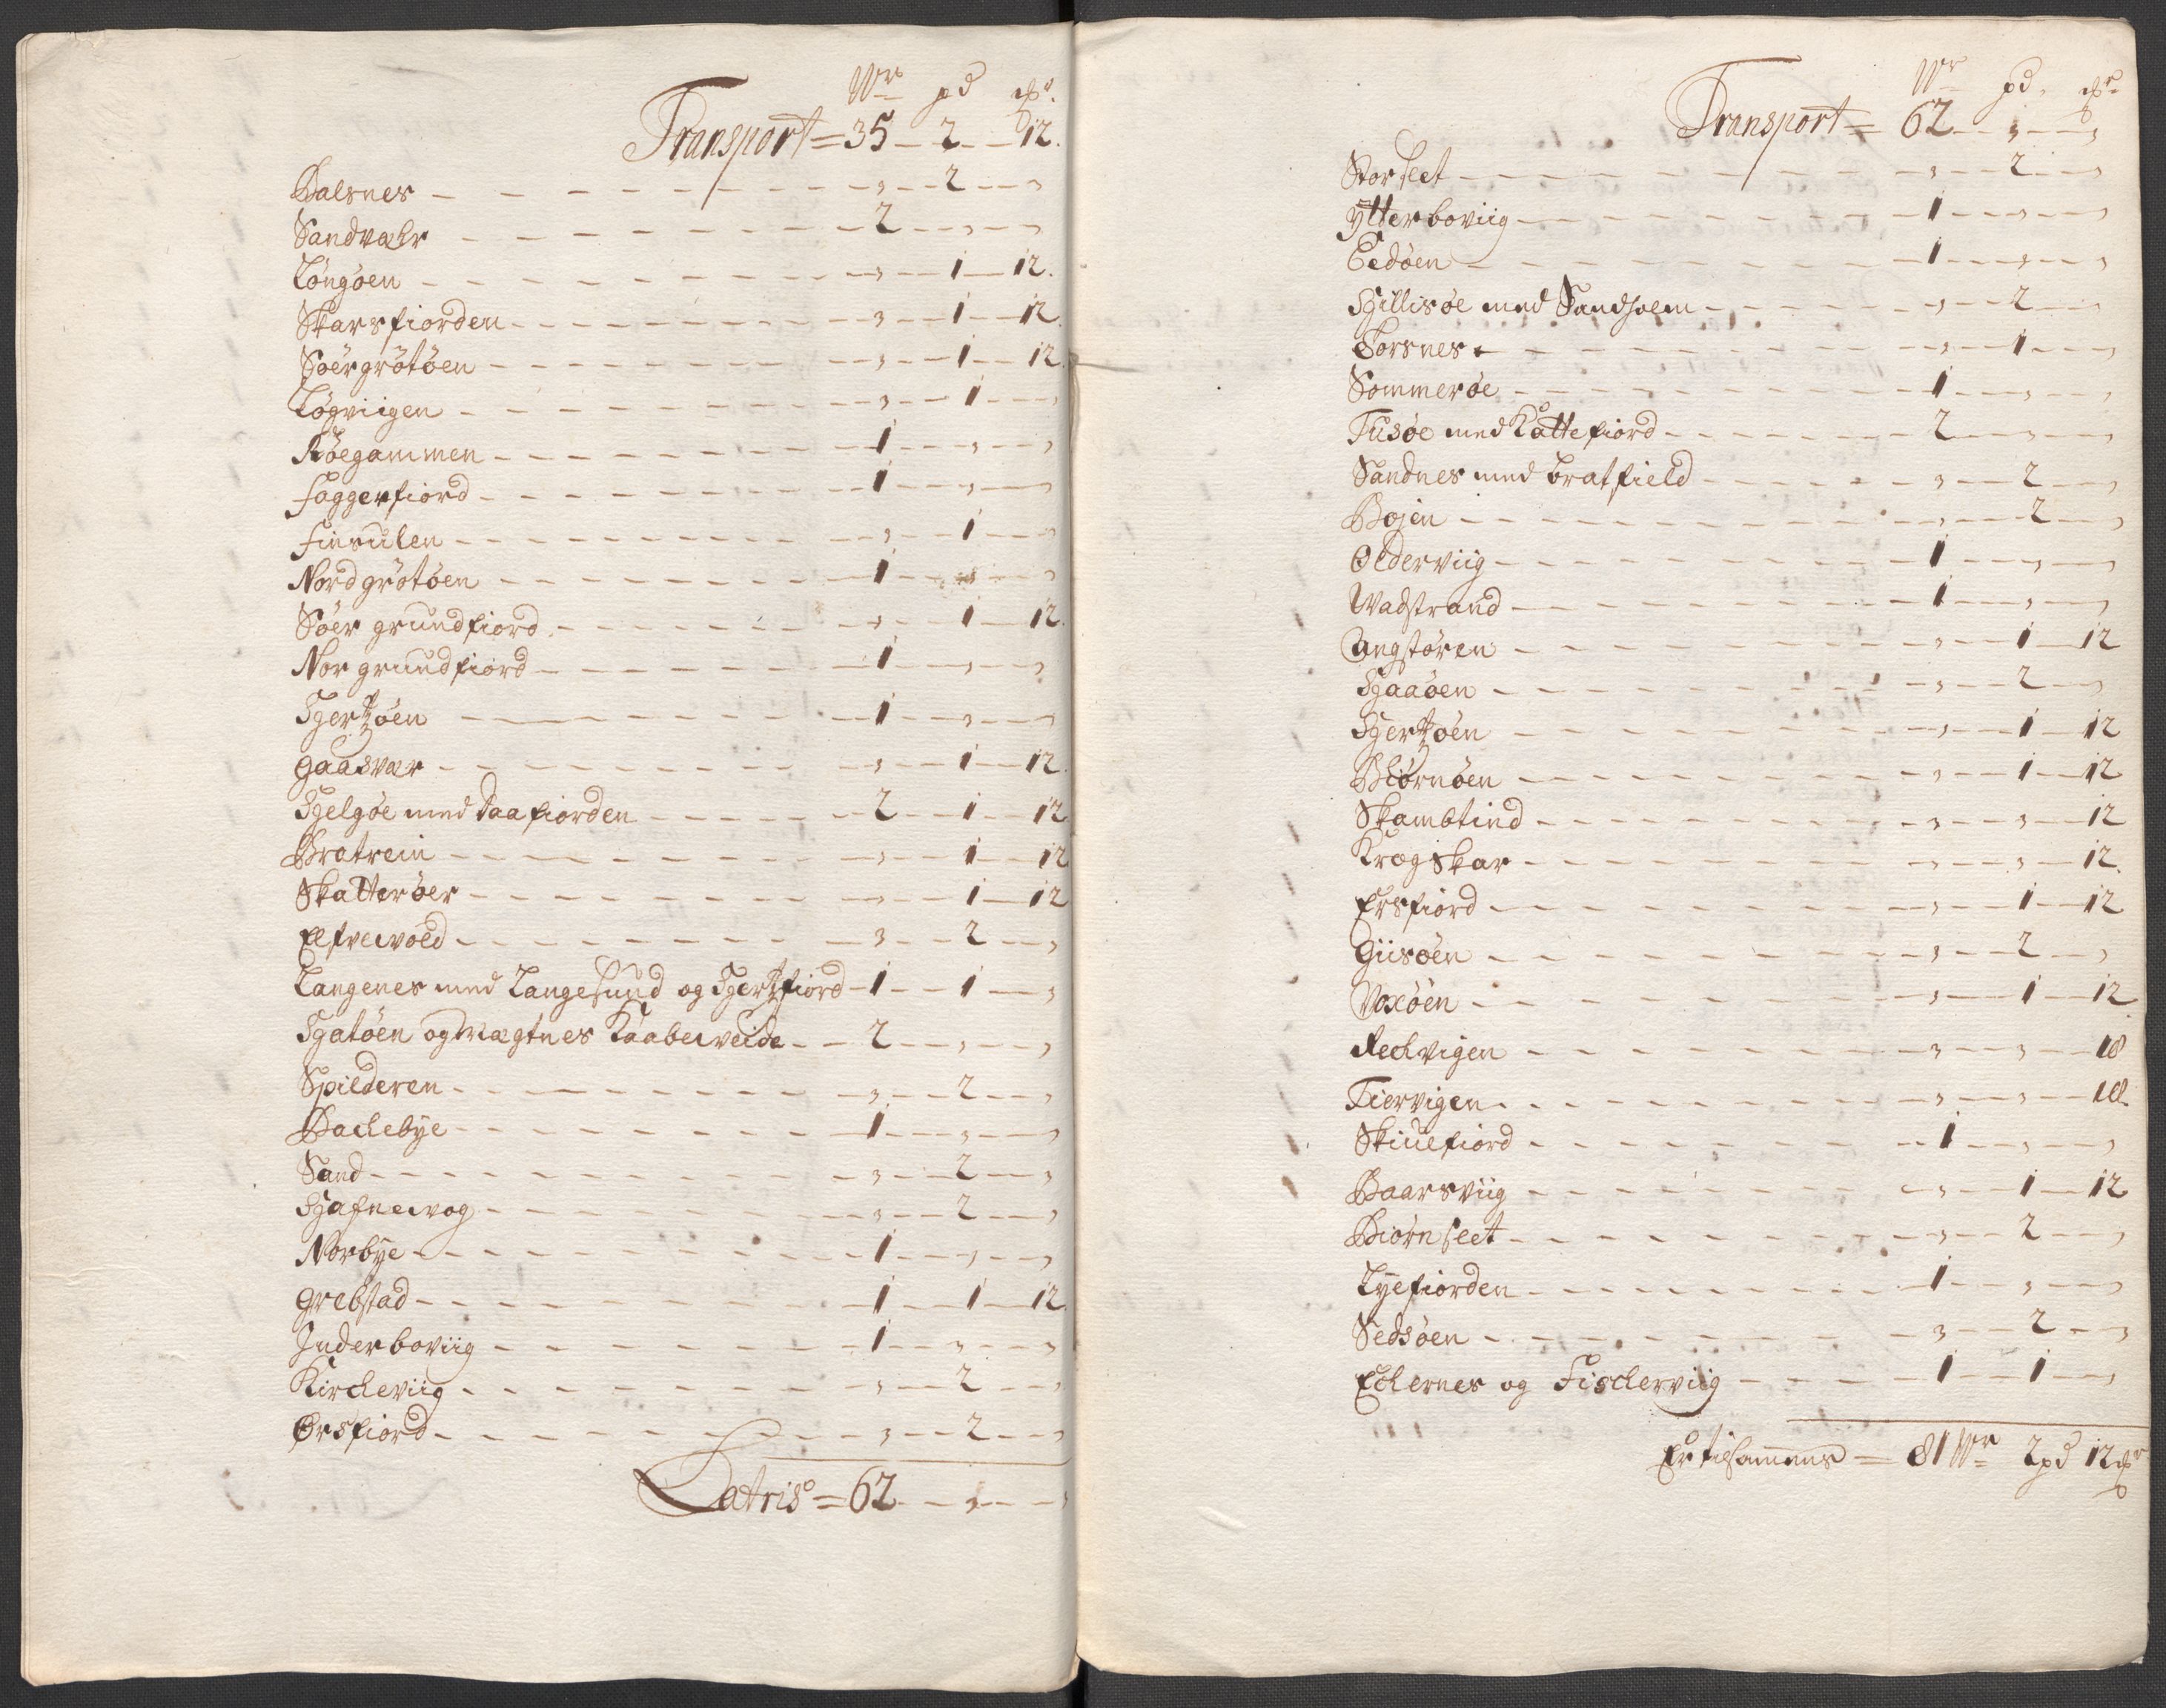 Wr pd
Transport = 35 – 2 – 12.
Balsnes – – – – „ – 2 – „
Sandvær – – – – 2 – „ – „
Löngöen – – – – „ – 1 – 12.
Skarsfiorden – – – – „ – 1 – 12
Söergrötöen – – – – „ – 1 – 12
Lögviigen – – – – „ – 1 – „
Röegammen – – – – 1 – „ – „
Faggerfiord – – – – 1 – „ – „
Finsulen – – – – „ – 1 – „
Nordgrötöen – – – – 1 – „ – „
Söer grundfiord – – – – „ – 1 – 12.
Nor grundfiord – – – – 1 – „ – „
Hertzöen – – – – 1 – „ – „
Gaasvær – – – – „ – 1 – 12
Helgöe med Daafiorden – – – – 2 – 1 – 12
Bratrein – – – – „ – 1 – 12
Skatteröer – – – – „ – 1 – 12
Elfvevold – – – – „ – 2 – „
Langenes med Langesund og Hertzfiord – 1 – 1 – „
Hatöen og Vægtnes Kaaberveide – – 2 – „ – „
Spilderen – – – – „ – 2 – „
Backebye – – – – 1 – „ – „
Sand – – – – „ – 2 – „
Hafnevog – – – – „ – 2 – „
Norbye – – – – 1 – „ – „
Grebstad – – – – 1 – 1 – 12.
Inderboviig – – – – 1 – „ – „
Kirckeviig – – – – „ – 2 – „
Örsfiord – – – – „ – 2 – „
Latris = 62 – „ – „
Wr pd.
Transport = 62 – „ – „
Storsleet – – – – „ – 2 – „
Ytterboviig – – – – 1 – „ – „
Eedöen – – – – 1 – „ – „
Hillisöe med Sandholm – – – – „ – 2 – „
Torsnes – – – – „ – 1 – „
Sommeröe – – – – 1 – „ – „
Tusöe med Kattefiord – – – – 2 – „ – „
Sandnes med Bratfield – – – – „ – 2 – „
Bojen – – – – „ – 2 – „
Olderviig – – – – 1 – „ – „
Wadstrand – – – – 1 – „ – „
Angstören – – – – „ – 1 – 12
Haaöen – – – – „ – 2 – „
Hertzöen – – – – „ – 1 – 12
Biörnöen – – – – „ – 1 – 12
Skambtind – – – – „ – „ – 12
Krogskar – – – – „ – „ – 12.
Ersfiord – – – – „ – 1 – 12
Giisöen – – – – „ – 2 – „
Voxöen – – – – „ – 1 – 12
Reckvigen – – – – „ – „ – 18
Tiervigen – – – – „ – „ – 18.
Skiuefiord – – – – 1 – „ – „
Baarsviig – – – – „ – 1 – 12
Biörnsleet – – – – „ – 2 – „
Lyefiorden – – – – 1 – „ – „
Sedsöen – – – – „ – 2 – „
Eckernes og Fischerviig – – – – 1 – 1 – „
Er tilsammens = 81 Wr 2 pd 12